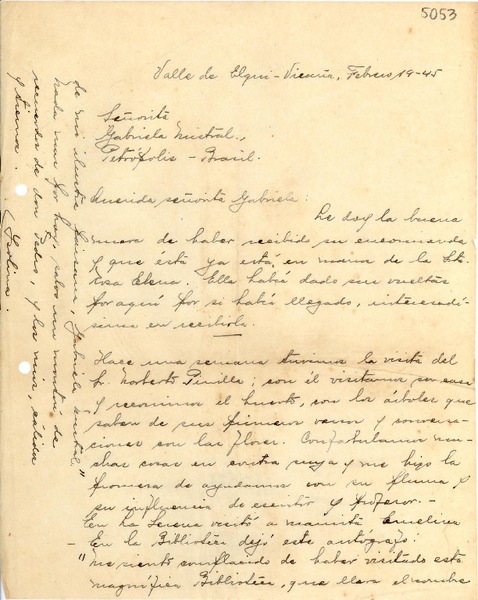 5053
Valle de Elqui - Vicuña, Febrero 19-45
Señorita
Gabriela Mistral.,
Petrópolis - Brasil.
Querida señorita Gabriela:
Le doy la buena
nueva de haber recibido su encomienda
y que ésta ya está en manos de la Sta.
Rosa Elena; Ella había dado sus vueltas
por aquí por si había llegado, interesadí-
sima en recibirla.
Hace una semana tuvimos la visita del
Sr. Norberto Pinilla; con él visitamos su casa
y recorrimos el huerto, con los árboles que
saben de sus primeros versos y conversa-
ciones con las flores. Confabulamos mu-
chas cosas en contra suya y me hizo la
promesa de ayudarnos con su pluma y
su influencia de escritor y profesor.-
En La Serena visitó a mamita Emelina
- En la Biblioteca dejó este autógrafo:
"Me siento complacido de haber visitado esta
magnífica Biblioteca, que lleva el nombre
de mi ilustre hermana, Gabriela Mistral."
Nada más por hoy, salvo un montón de
recuerdos de don Pedro, y los míos, cálidos
y tiernos.